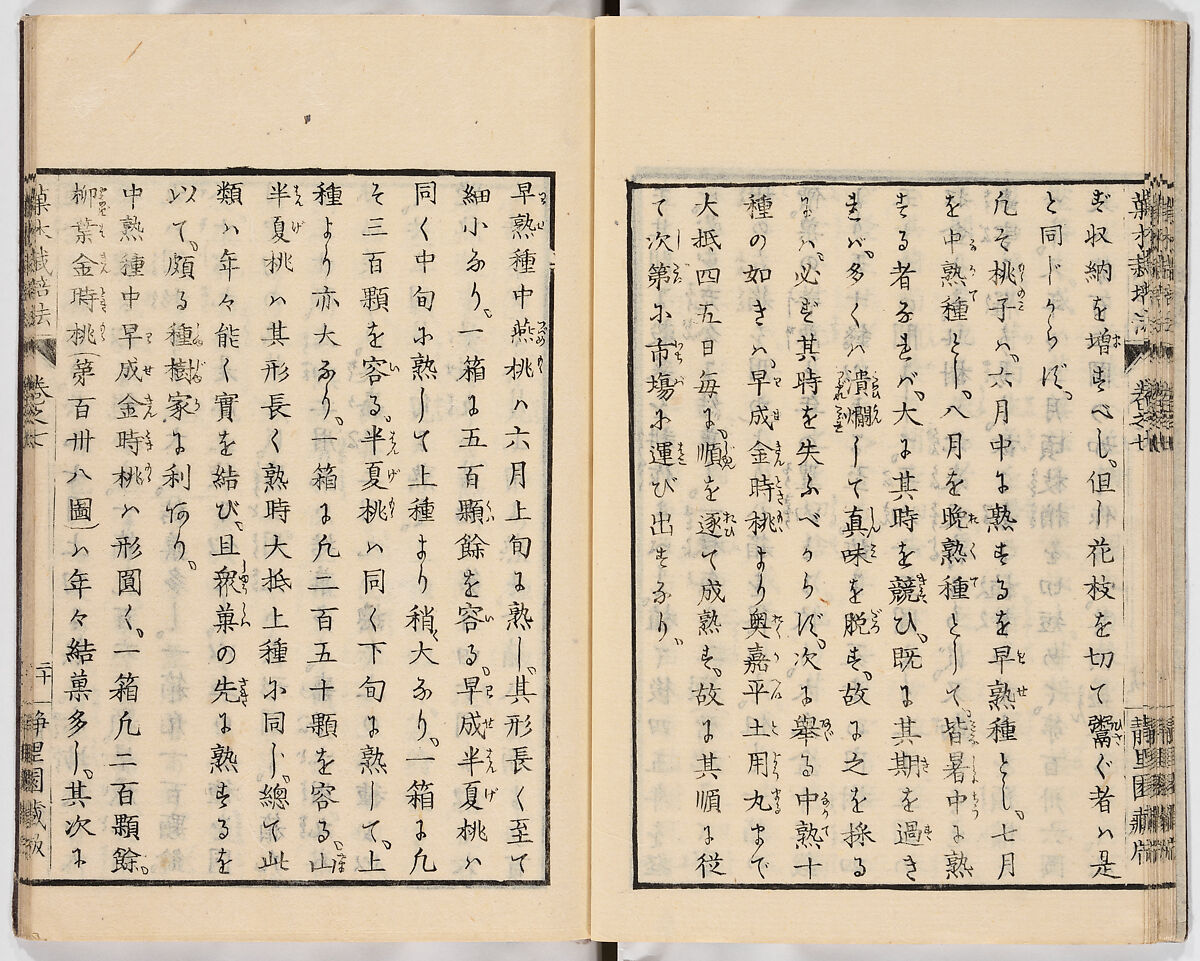 菓木栽培法
巻之七
静里園藏版
ず収納を増すべし、但し花枝を切て鬻ぐ者ハ是
と同じからず、
凡そ桃子ハ、六月中に熟するを早熟種とし、七月
を中熟種とし、八月を晩熟種として、皆暑中に熟
する者なれバ、大に其時を競ひ、既に其期を過き
れバ、多くハ潰爛して真味を脱す、故に之を採る
にハ、必ず其時を失ふべからず、次に舉る中熟十
種の如きハ、早成金時桃より奥嘉平土用丸まで
大抵四五日毎に、順を逐て成熟す、故に其順に従
て次第に市場に運び出すなり、
早熟種中燕桃ハ六月上旬に熟し、其形長く至て
細小なり、一箱に五百顆餘を容る、早成半夏桃ハ
同く中旬に熟して上種より稍大なり、一箱に凡
そ三百顆を容る、半夏桃ハ同く下旬に熟して、上
種より亦大なり、一箱に凡二百五十顆を容る、山
半夏桃ハ其形長く熟時大抵上種に同じ、總て此
類ハ年々能く實を結び、且衆菓の先に熟するを
以て、頗る種樹家に利有り、
中熟種中早成金時桃ハ形圓く、一箱凡二百顆餘、
柳葉金時桃(第百卅八圖)ハ年々結菓多し、其次に
菓木栽培法
巻之七
二十
静里園藏版